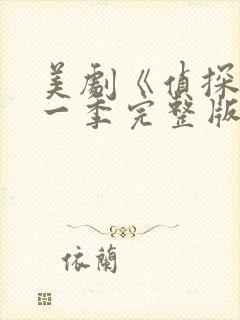 美劇《偵探
一季完整版
依蘭